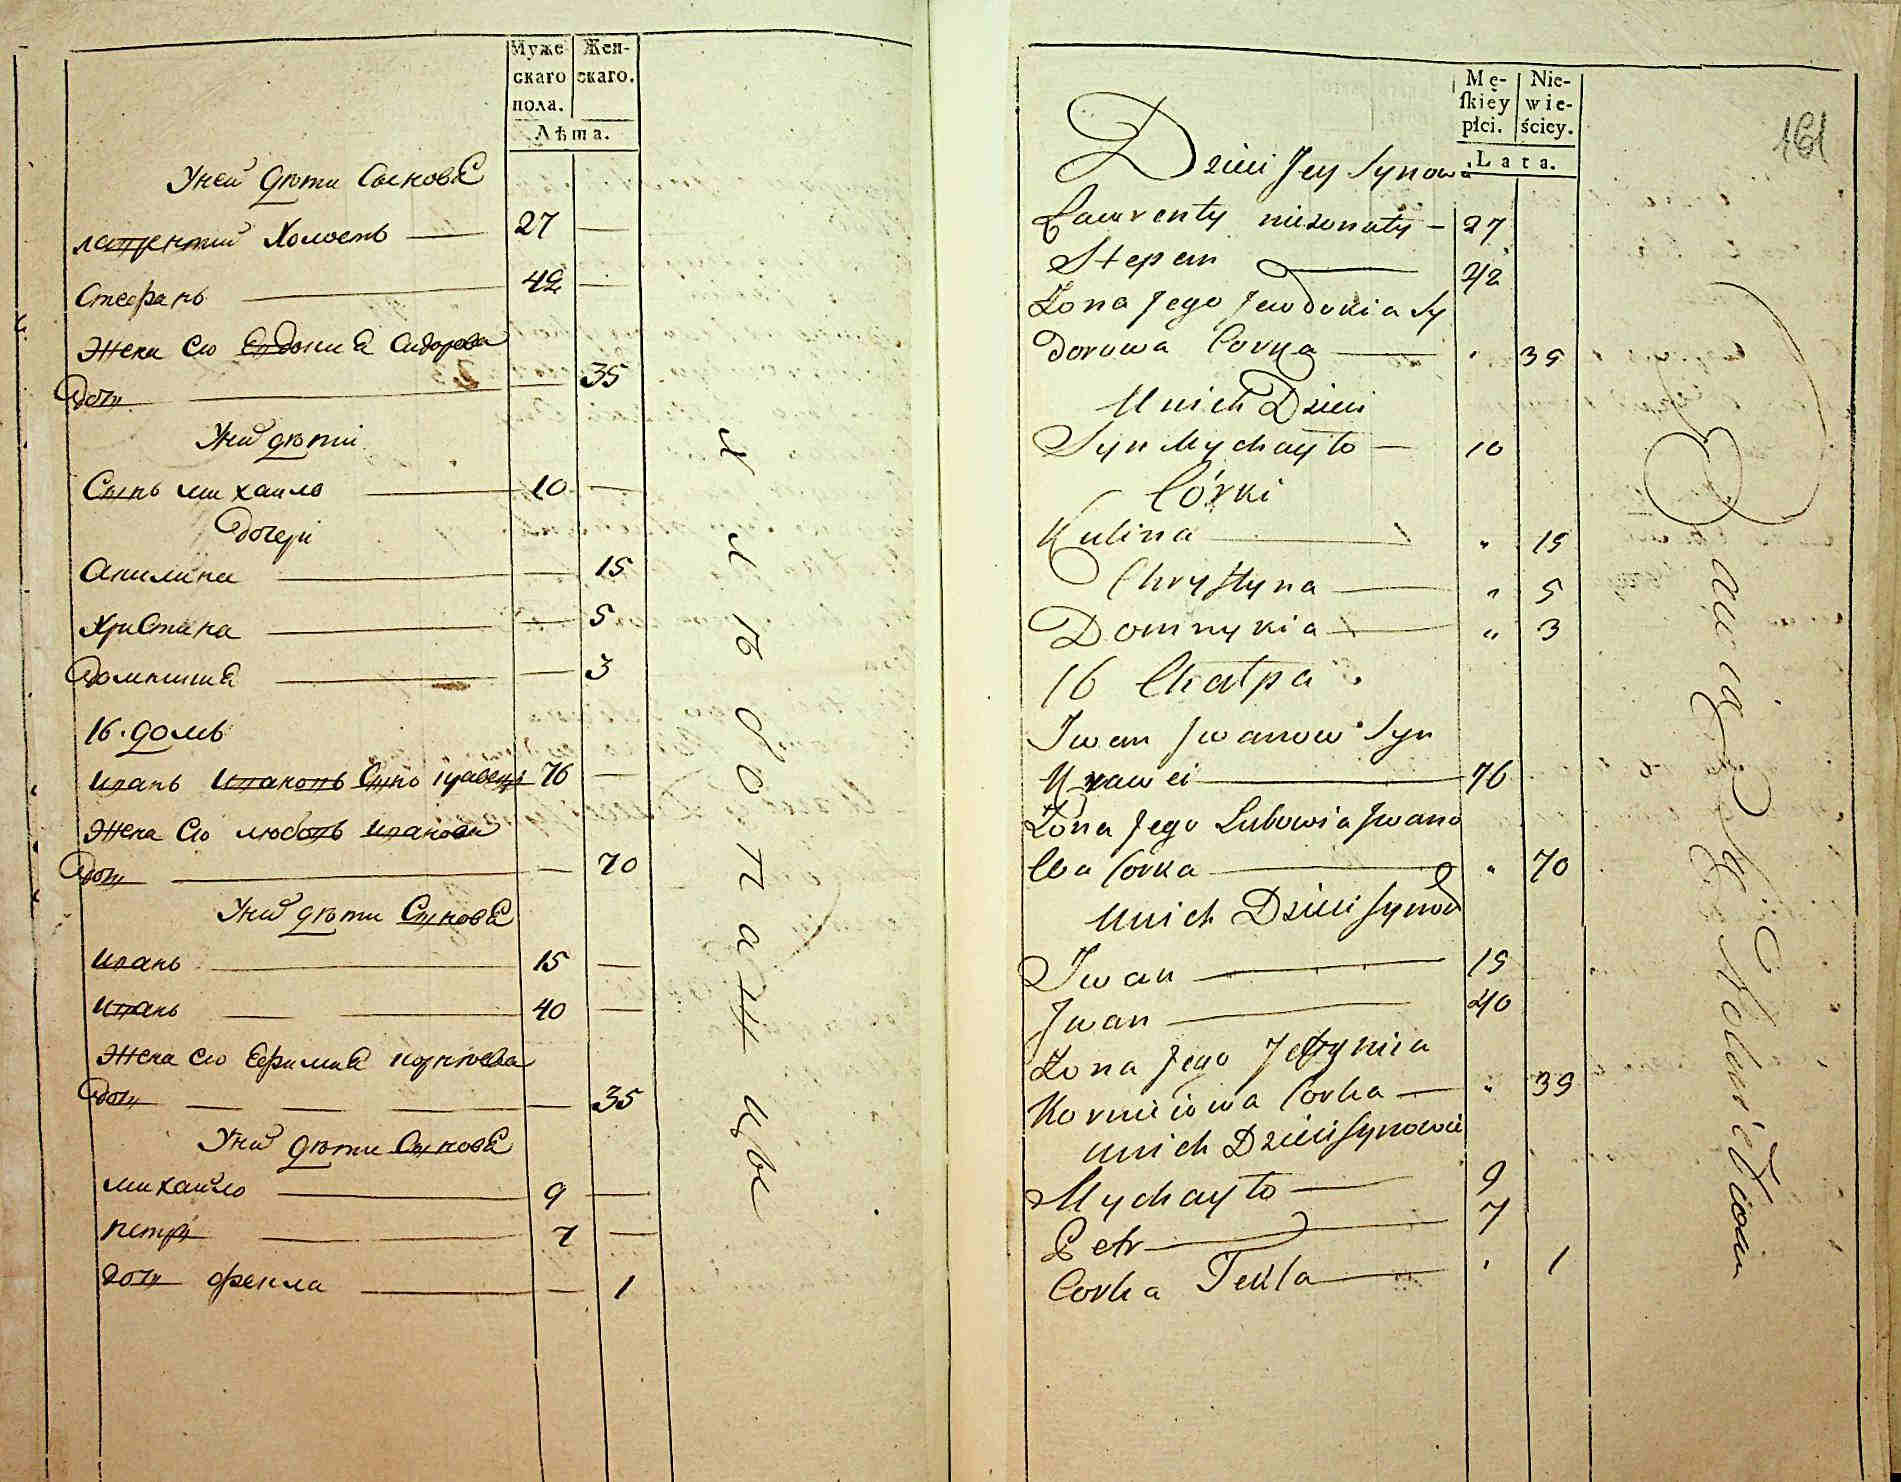 Муже
скаго
пола.
Жен-
скаго.
Лѣта.
Уней дѣти Сынове
лаврентий Холостъ 27
Стефанъ 42
Жена его Евдокиа Сидорова
дочь 35
Уних дѣти
Сынъ михаило 10
дочери
Акилина 15
Христина 5
Домникиа 3
16. домъ
иванъ ивановъ Сынъ кравецъ 76
Жена его любовь иванова
дочь 70
Уних дѣти Сынове
иванъ 15
иванъ 40
Жена его Ефимиа корнеева
дочь 35
Уних дѣти Сынове
михайло 9
петръ 7
дочь фекла 1
хлѣбопашцы
Mę-
ſkiéy
płci.
Nie-
wie-
ściey.
Lata.
161
Dzieci Jey Synowe
Lawrenty nieżonaty 27
Stepan 42
Żona Jego Jewdokia Sy
dorowa Corka " 35
Unich Dzieci
Syn Mychayło 10
Córki
Kulina " 15
Chrystyna " 5
Domnykia " 3
16 Chatpa
Iwan Iwanow Syn
Krawei 76
Żona Jego Lubowia Iwano
wa Corka " 70
Unich Dzieci Synow
Iwan 15
Iwan 40
Żona Jego Jefymia
Korniiowa Corka " 35
Unich Dzieci Synowie
Mychayło 9
Petr 7
Corka Tekla " 1